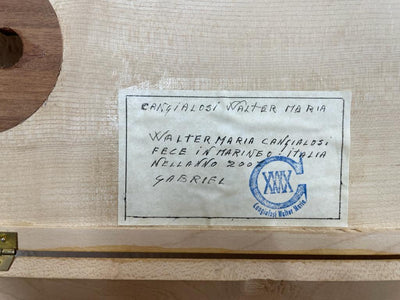 CANGIALOSI WALTER MARIA
WALTER MARIA CANGIALOSI
FECE IN MARINEO - ITALIA
NELL ANNO
GABRIEL
XXX
Cangialosi Walter Maria